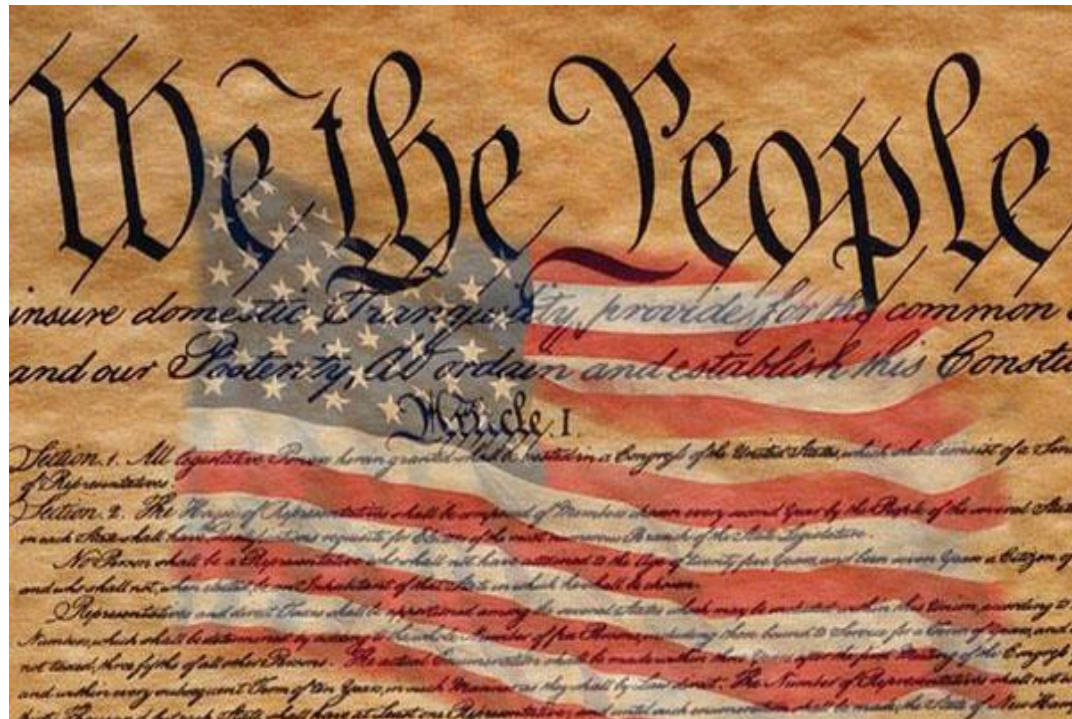 We the People
insure domestic Tranquility, provide for the common
and our Posterity, do ordain and establish this Constit
Article. I.
Section. 1. All legislative Powers herein granted shall be vested in a Congress of the United States, which shall consist of a Sen
of Representatives
Section. 2. The House of Representatives shall be composed of Members chosen every second Year by the People of the several State
in each State shall have Qualifications requisite for Electors of the most numerous Branch of the State Legislature.
No Person shall be a Representative who shall not have attained to the Age of twenty five Years, and been seven Years a Citizen of
and who shall not, when elected, be an Inhabitant of that State in which he shall be chosen.
Representatives and direct Taxes shall be apportioned among the several States which may be included within this Union, according to
Numbers, which shall be determined by adding to the whole Number of free Persons, including those bound to Service for a Term of Years, and
not taxed, three fifths of all other Persons. The actual Enumeration shall be made within three Years after the first Meeting of the Congress
and within every subsequent Term of ten Years, in such Manner as they shall by Law direct. The Number of Representatives shall not
Thousand, but each State shall have at Least one Representative; and until such enumeration shall be made, the State of New Hamp